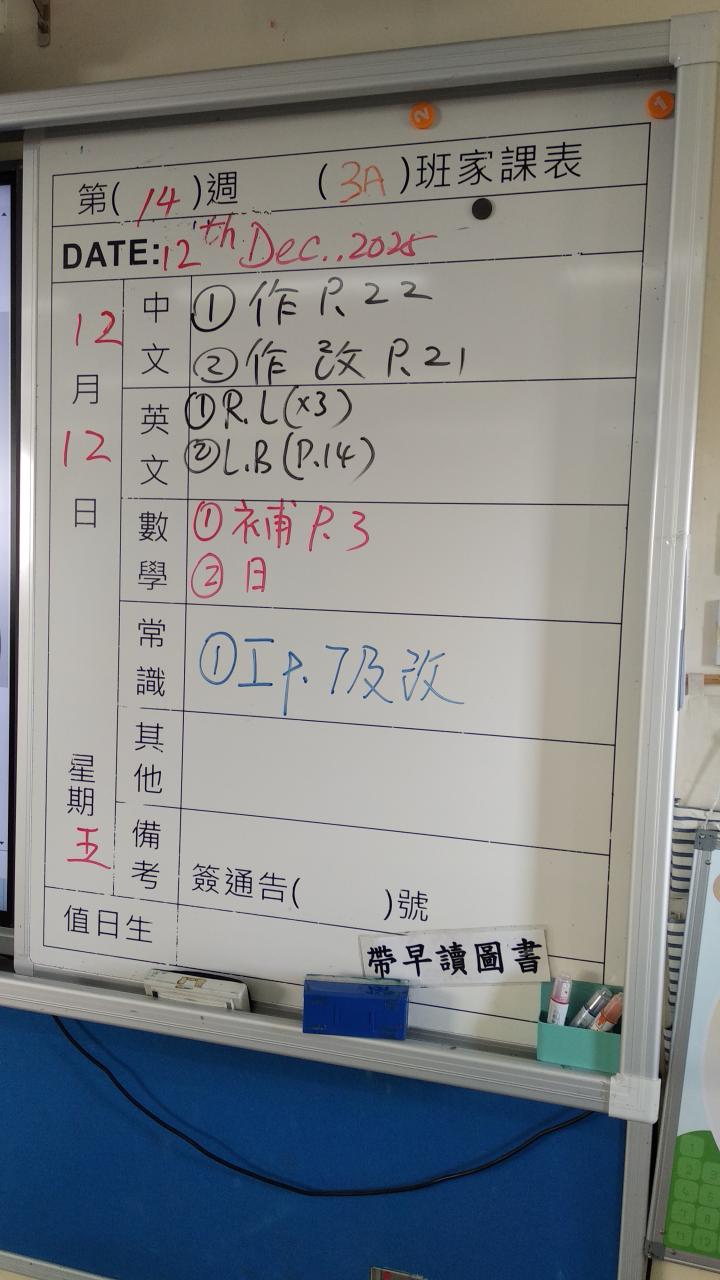 第(14)週 (3A)班家課表
DATE:12th Dec..2025
12月12日
星期五
中文
①作 P.22
②作 改 P.21
英文
①R.L(x3)
②L.B(P.14)
數學
①補 P.3
②日
常識
①工P.7及改
其他
備考
簽通告( )號
值日生
帶早讀圖書
2
1